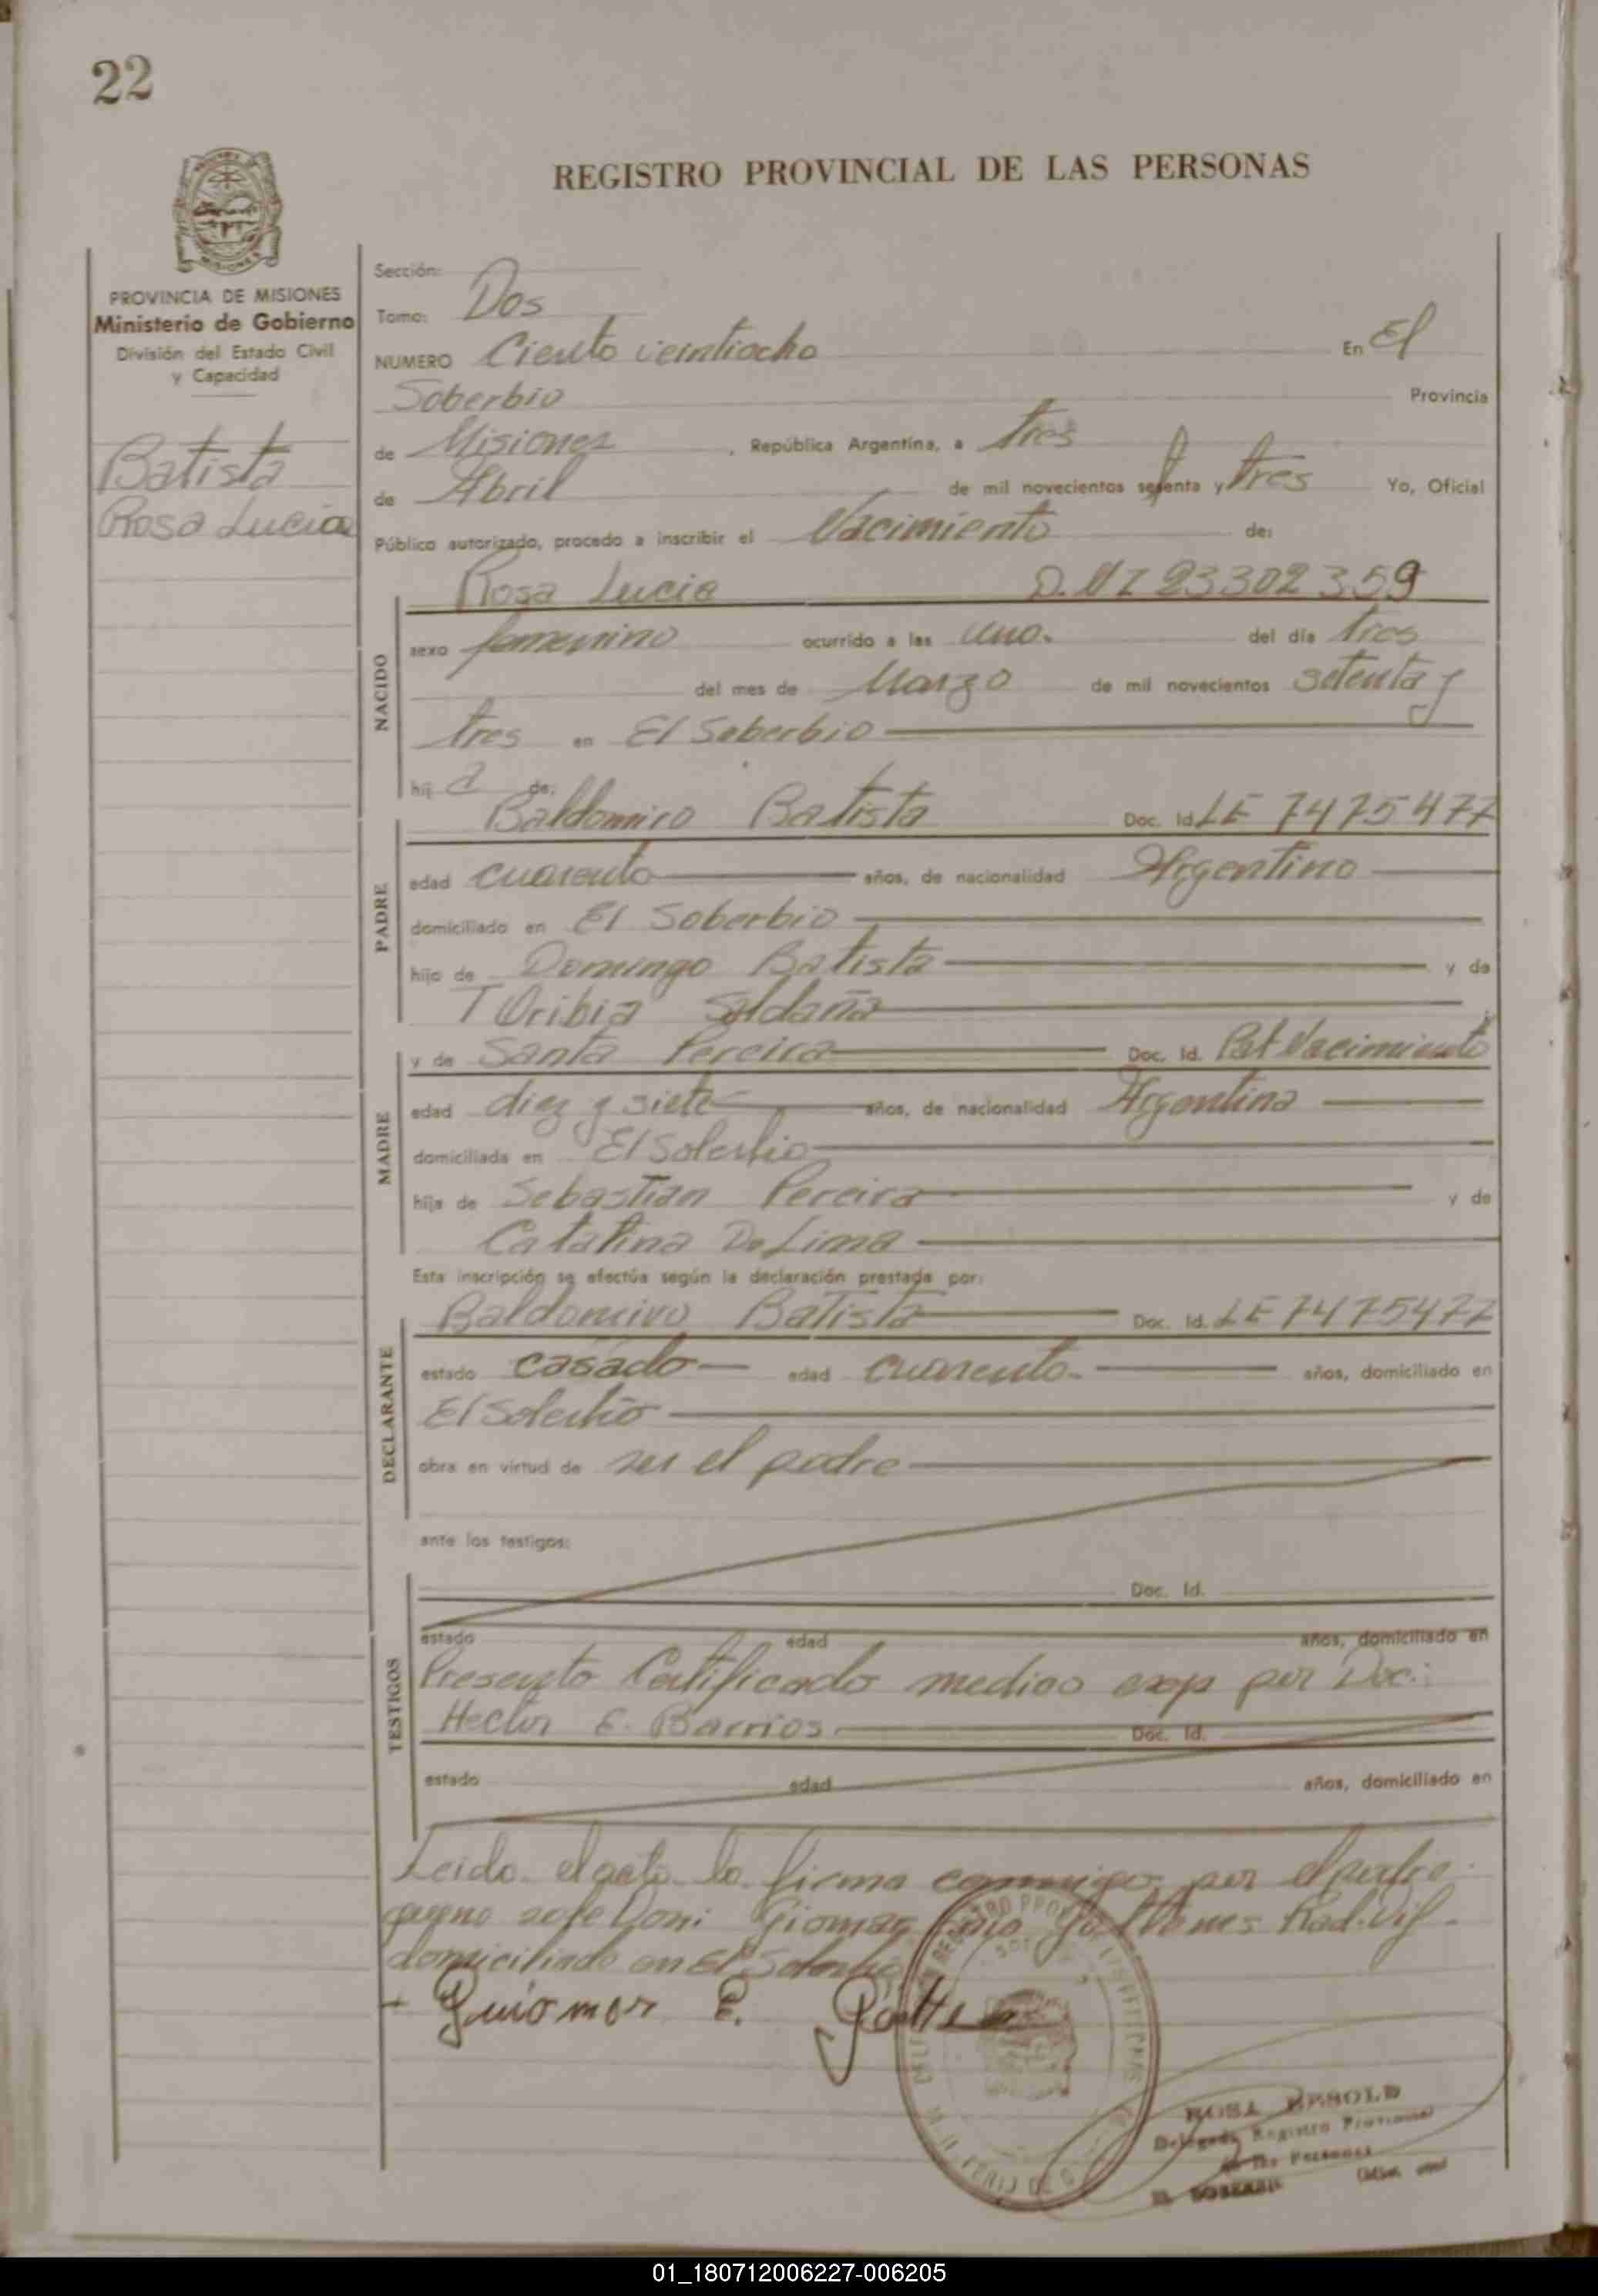 22
REGISTRO PROVINCIAL DE LAS PERSONAS
MISIONES
PROVINCIA DE MISIONES
Ministerio de Gobierno
División del Estado Civil
y Capacidad
Batista
Rosa Lucia
Sección:
Tomo: Dos
NUMERO Ciento veintiocho En El
Soberbio Provincia
de Misiones, República Argentina, a tres
de Abril de mil novecientos setenta y tres Yo, Oficial
Público autorizado, procedo a inscribir el Nacimiento de:
Rosa Lucia D.NI 23302359
NACIDO
sexo femenino ocurrido a las una. del día tres
del mes de Marzo de mil novecientos setenta y
tres en El Soberbio
hij a de:
Baldomiro Batista Doc. Id. LE 7475477
PADRE
edad cuarenta años, de nacionalidad Argentino
domiciliado en El Soberbio
hijo de Domingo Batista y de
TOribia Saldaña
y de Santa Pereira Doc. Id. Pat Nacimiento
MADRE
edad diez y siete años, de nacionalidad Argentina
domiciliada en El Soberbio
hija de Sebastian Pereira y de
Catalina De Lima
Esta inscripción se efectúa según la declaración prestada por:
Baldomiro Batista Doc. Id. LE 7475477
DECLARANTE
estado casado edad cuarenta años, domiciliado en
El Soberbio
obra en virtud de ser el padre
ante los testigos:
Doc. Id.
TESTIGOS
estado edad años, domiciliado en
Presento Certificado medico exp por Doc.:
Hector E. Barrios. Doc. Id.
estado edad años, domiciliado en
Leido el acta la firma conmigo por el padre
que no sabe Doni Giomar Rad. Vif.
domiciliado en El Soberbio
Guiomar E.
ROSA BESOLD
Delegada Registro Provincial
de las Personas
EL SOBERBIO
01_180712006227-006205